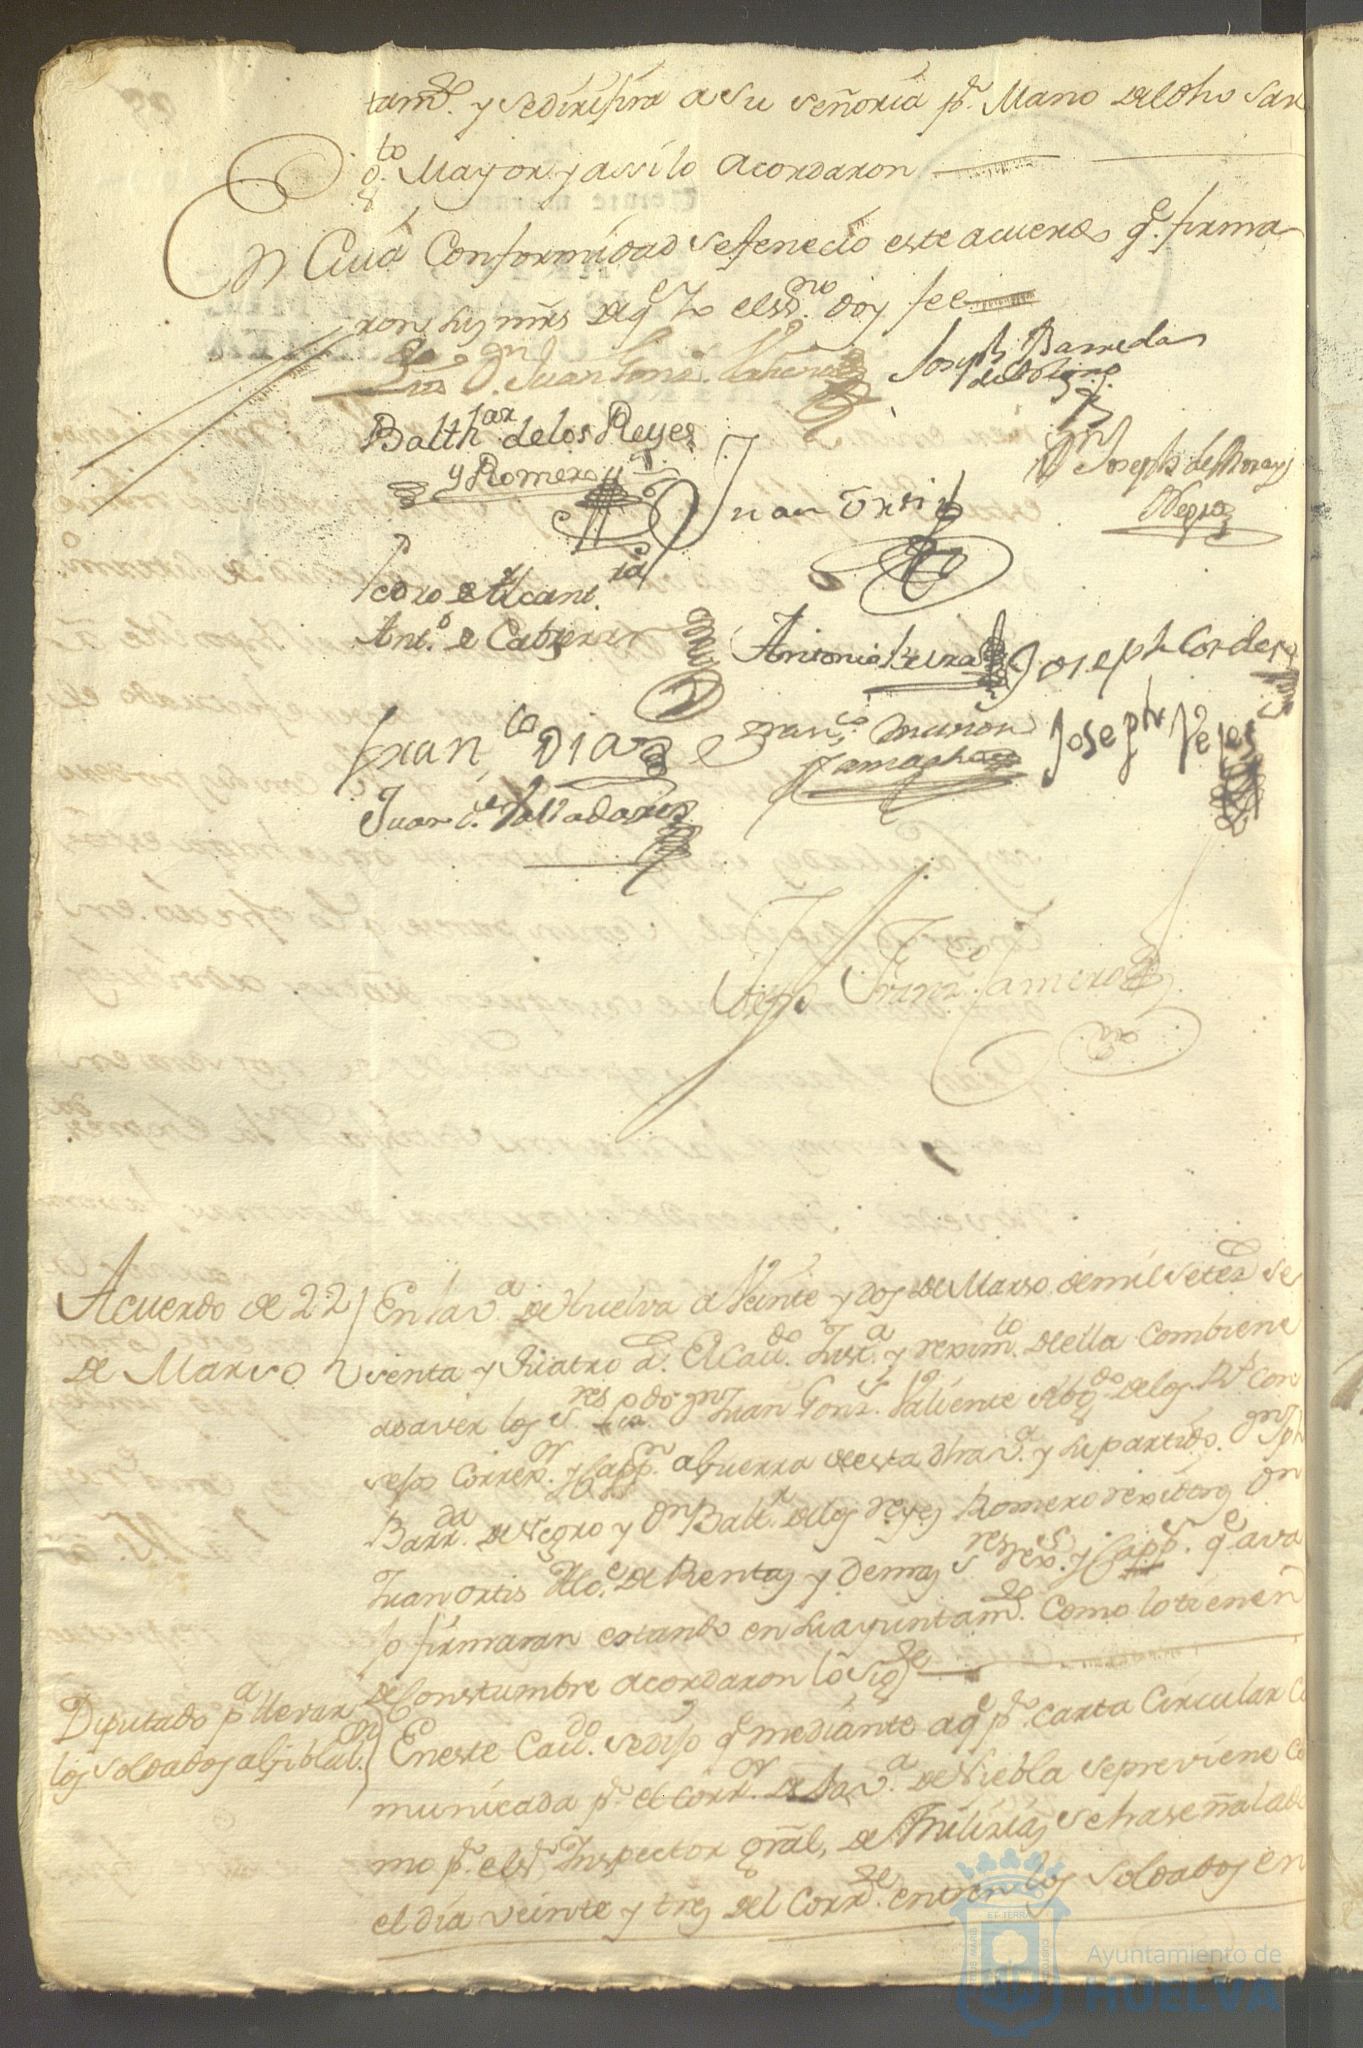 tam.to y se dirijira a su señoria p.r Mano del dho Sar
g.to Mayor y assi lo acordaron
En Cuia Conformidad se fenecio este acuerdo q.e firma
ron sus mrds de q.e Yo el ss.no doy fee
Liz.do D.n Juan Gonz. Valiente
Joseph Barreda
Balth.ar de los Reyes
y Romero
Juan Ortiz
D.n Joseph de
Negro
Pedro de Alcant.ra
Ant.o de Cabrera
Antonio
Joseph Cordero
Fran.co Diaz
Fran.co
Joseph Reyes
Juan de Valladares
Fran.co Jamero
Acuerdo de 22
de Marso
En la V.a de Huelva a Veinte y dos de Marso de mil setez.s se
senta y quatro a.s El Cav.do Just.a y reximi.to de ella Combiene
a saver los S.res Liz.do D.n Juan Gonz. Valiente Abog.do de los R.s Con
sejos Correx.or y Cap.n a Guerra de esta dha V.a y su partido. D.n Jph
Barr.da de Negro y D.n Balt.r de los reyes Romero rexidores D.n
Juan Ortis Alc.e de Rentas y demas S.res rex.s y Capp.s q.e ava
jo firmaran estando en su ayuntam.to Como lo tienen
de Constumbre acordaron lo sig.te
Diputado p.a llevar
los soldados a Giblal.on
En este Cav.do se dijo q.e mediante a q.e p.r carta Circular co
municada p.r el corr.or de la V.a de Niebla se previene co
mo p.r el S.r Inspector gral, de Milixias se ha señalado
el dia veinte y tres del Corr.te entren los soldados en
ET TERRAE
MARIS
Ayuntamiento de
HUELVA